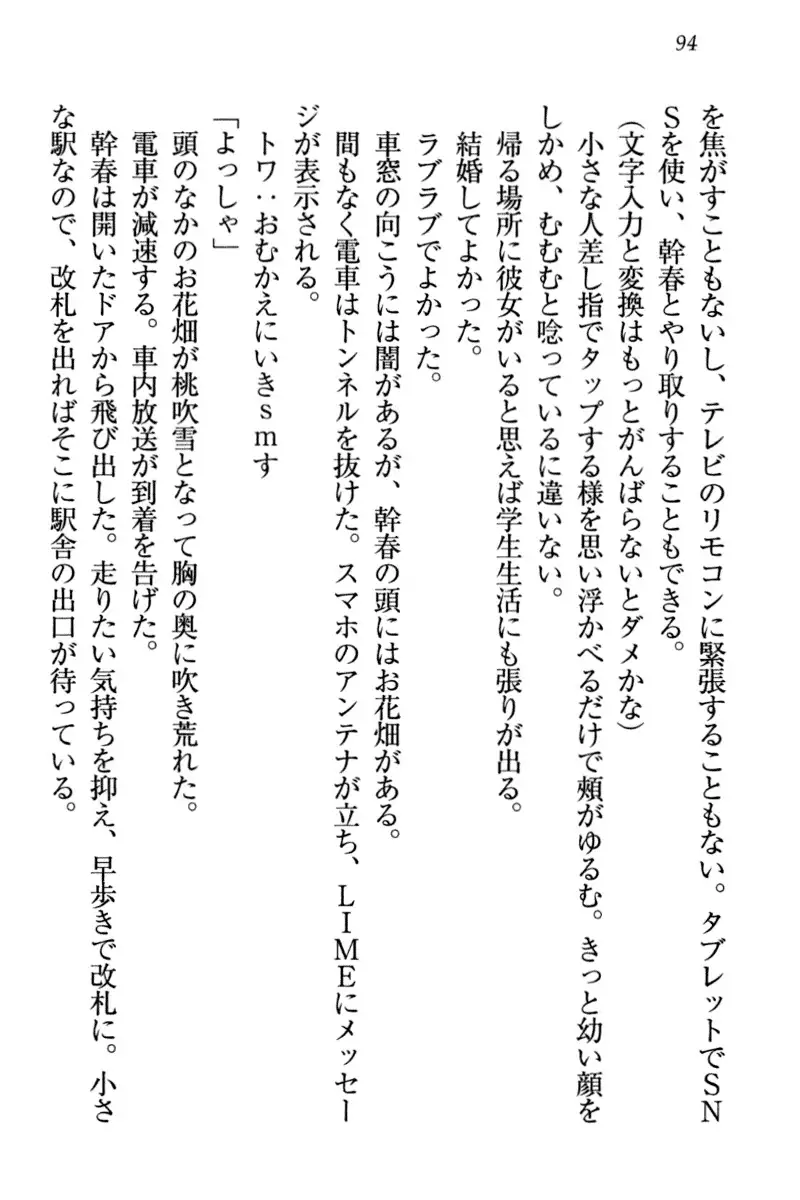 94
を焦がすこともないし、テレビのリモコンに緊張することもない。タブレットでSN
Sを使い、幹春とやり取りすることもできる。
(文字入力と変換はもっとがんばらないとダメかな)
小さな人差し指でタップする様を思い浮かべるだけで頰がゆるむ。きっと幼い顔を
しかめ、むむむと唸っているに違いない。
帰る場所に彼女がいると思えば学生生活にも張りが出る。
結婚してよかった。
ラブラブでよかった。
車窓の向こうには闇があるが、幹春の頭にはお花畑がある。
間もなく電車はトンネルを抜けた。スマホのアンテナが立ち、LIMEにメッセー
ジが表示される。
トワ：おむかえにいきsmす
「よっしゃ」
頭のなかのお花畑が桃吹雪となって胸の奥に吹き荒れた。
電車が減速する。車内放送が到着を告げた。
幹春は開いたドアから飛び出した。走りたい気持ちを抑え、早歩きで改札に。小さ
な駅なので、改札を出ればそこに駅舎の出口が待っている。